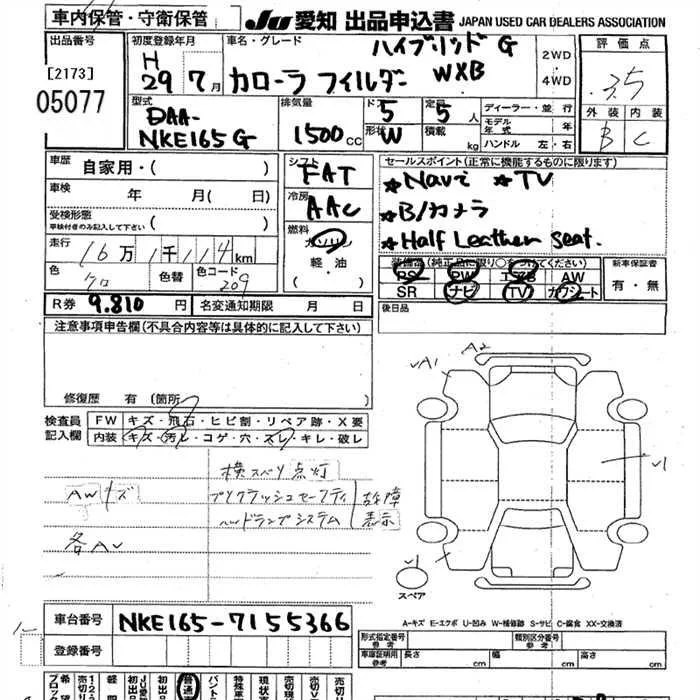 車内保管・守衛保管
JU 愛知 出品申込書 JAPAN USED CAR DEALERS ASSOCIATION
出品番号
[2173]
05077
初度登録年月
H
29年 7月
車名・グレード
ハイブリッド G
カローラ フィルダー WXB
2WD
4WD
評価点
3.5
外装 内装
B C
型式
DAA-
NKE165G
排気量
1500cc
ドア
5
形状
W
定員
5人
積載
kg
ディーラー・並行
モデル年式 年
ハンドル 左・右
車歴
自家用・( )
車検
年 月(日)
受検形態
車検付きのみ記入して下さい ( )
走行
16万1千114km
色
クロ
色替
色コード
209
シフト
FAT
冷房
AAC
燃料
ガソリン
軽・油
( )
セールスポイント(正常に機能するものに限ります)
★Navi ★TV
★B/カメラ
★Half Leather Seat.
装備品(純正品に限り○をつけてください)
PS PW エアB AW
SR ナビ TV カワシート
新車保証書
有・無
R券 9.810 円
名変通知期限 月 日
後日品
注意事項申告欄(不具合内容等は具体的に記入して下さい)
修復歴 有 (箇所
検査員記入欄
FW キズ・飛石・ヒビ割・リペア跡・X要
内装 キズ・汚レ・コゲ・穴・スレ・キレ・破レ
横スベリ点灯
AWキズ
プリクラッシュセーフティ
ヘッドランプシステム
故障表示
各AV
A1
A2
スペア
A-キズ E-エクボ U-凹み W-補修跡 S-サビ C-腐食 XX-交換済
車台番号 NKE165-7155366
登録番号
形式指定番号
類別区分番号
車庫証明用参考
長さ cm 幅 cm 高さ cm